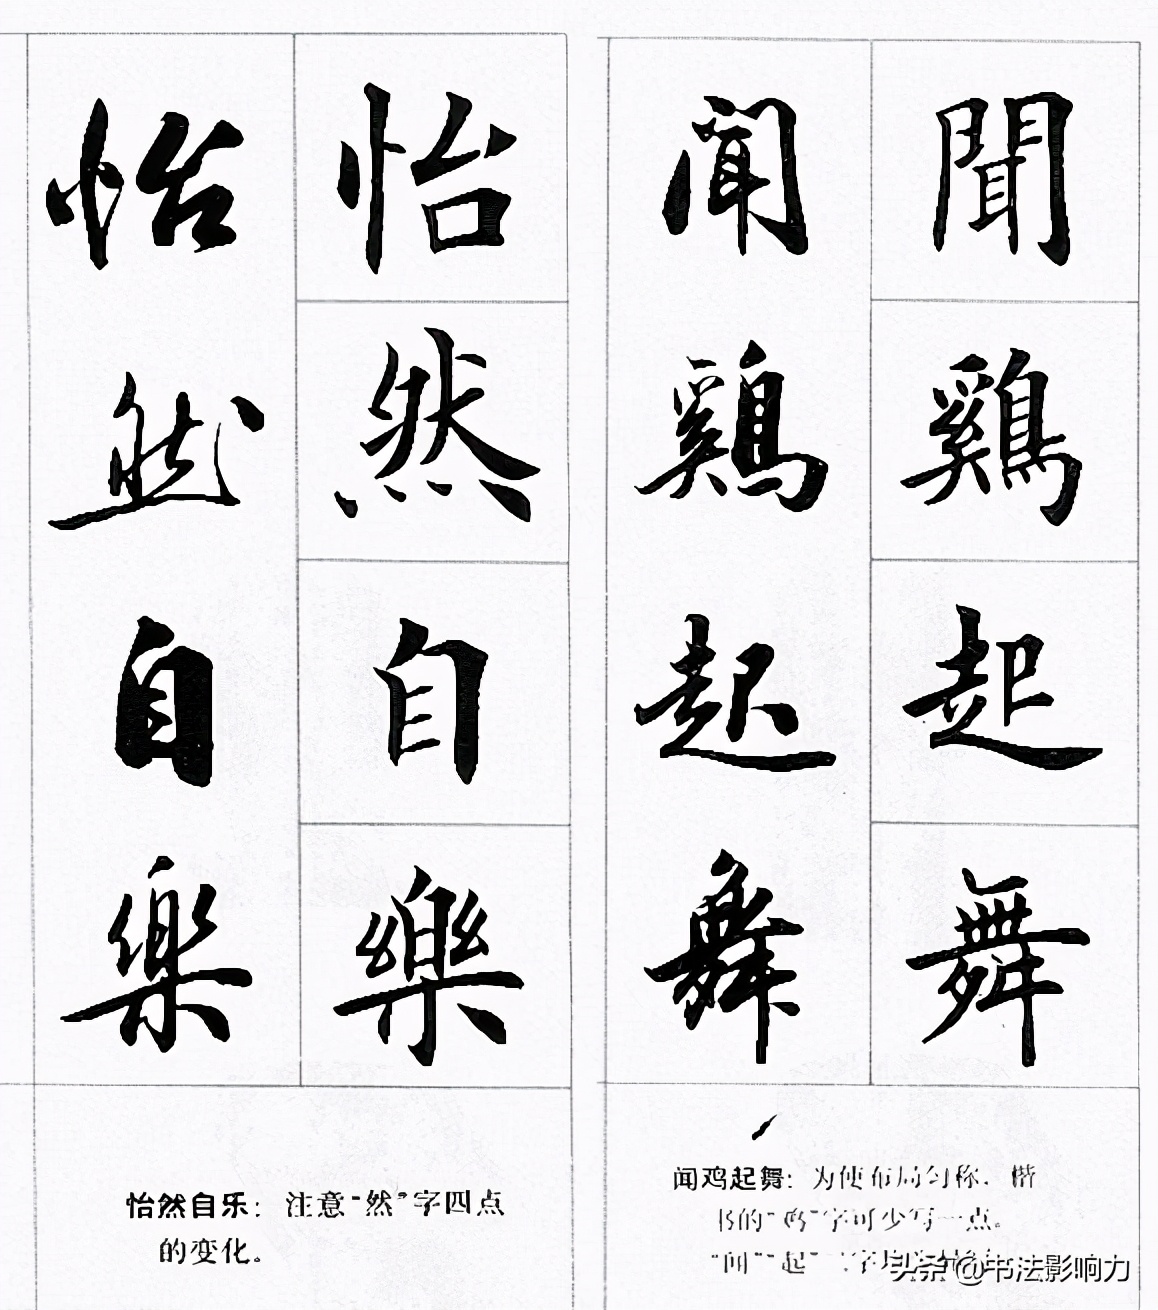 聞鷄起舞
聞鷄起舞
怡然自樂
怡然自樂
闻鸡起舞：为使布局匀称，楷
书的“鸡”字可少写一点。
“闻”“起”二字
怡然自乐：注意“然”字四点
的变化。
头条@书法影响力